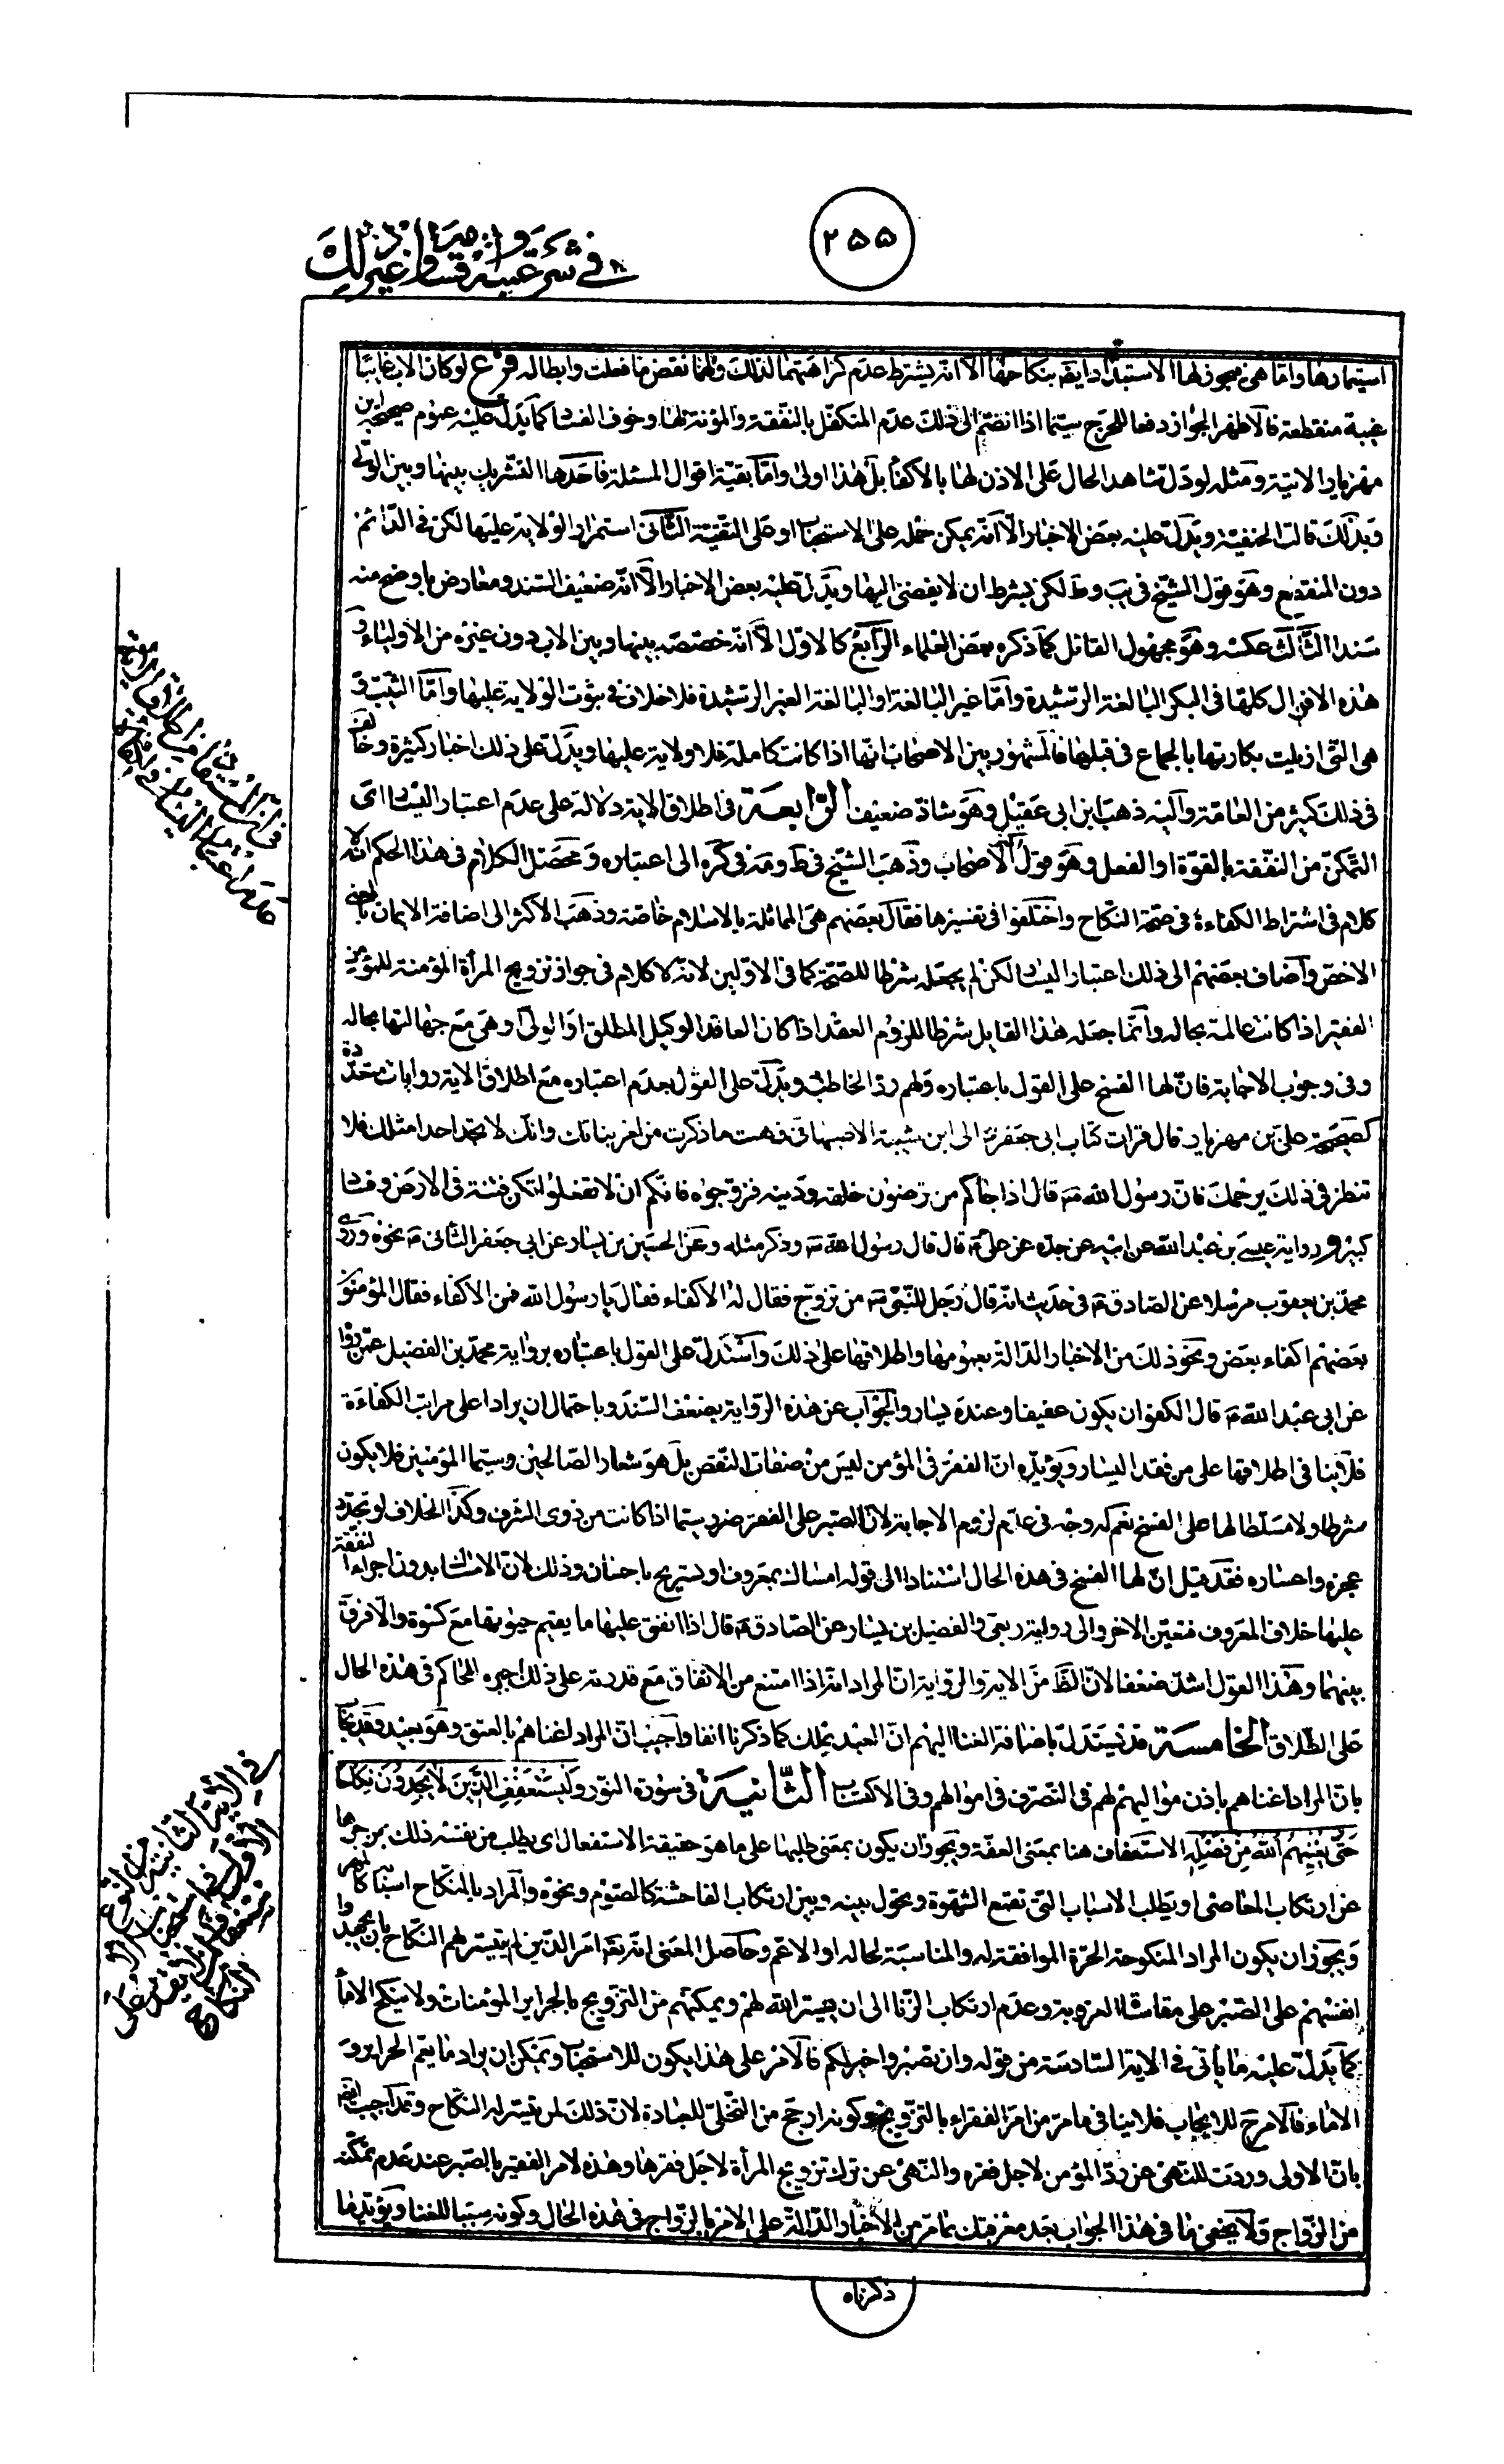 ٢٥٥
في شرعية وأقسام وغير ذلك
استيمارها وامّا هى فيجوز لها الاستبداد ايضا بنكاحها الّا انّه يشترط عدم كراهتهما لذلك ولهما نقض ما فعلت وابطاله فرع لو كان الاب غايبًا
غيبة منقطعة فالاظهر الجواز دفعا للحرج سيّما اذا انضمّ الى ذلك عدم المتكفّل بالنّفقة والمؤنة لها وخوف الفساد كما يدلّ عليه عموم صحيحة ابن
مهزيار الاتية ومثله لو دلّ شاهد الحال على الاذن لها بالاكفاء بل هذا اولى وامّا بقيّة اقوال المسئلة فاحدها التشريك بينها وبين الولىّ
وبذلك قالت الحنفيّة ويدلّ عليه بعض الاخبار الّا انّه يمكن حمله على الاستحباب او على التقيّة الثّانى استمرار الولاية عليها لكن فى الدّائم
دون المنقطع وهو قول الشّيخ فى يب وط لكن بشرط ان لا يفضى اليها ويدلّ عليه بعض الاخبار الّا انّه ضعيف السّند ومعارض باوضح منه
سندا الثّالث عكسه وهو مجهول القائل كما ذكره بعض العلماء الرّابع كالاوّل الّا انّه خصّصه بينها وبين الاب دون غيره من الاولياء و
هذه الاقوال كلّها فى البكر البالغة الرّشيدة وامّا غير البالغة او البالغة الغير الرّشيدة فلا خلاف فى ثبوت الولاية عليها وامّا الثّيّب و
هى الّتى ازيلت بكارتها بالجماع فى قبلها فالمشهور بين الاصحاب انّها اذا كانت كاملة فلا ولاية عليها ويدلّ على ذلك اخبار كثيرة وخالف
فى ذلك كثير من العامّة واليه ذهب ابن ابى عقيل وهو شاذّ ضعيف الرّابعة فى اطلاق الاية دلالة على عدم اعتبار اليسار اى
التمكّن من النّفقة بالقوّة او الفعل وهو قول اكثر الاصحاب وذهب الشّيخ فى ط ومة فى كره الى اعتباره ومحصّل الكلام فى هذا الحكم انّه لا
كلام فى اشتراط الكفاءة فى صحّة النّكاح واختلفوا فى تفسيرها فقال بعضهم هى المماثلة بالاسلام خاصّة وذهب الاكثر الى اضافة الايمان بالمعنى
الاخصّ واضاف بعضهم الى ذلك اعتبار اليسار لكن لم يجعله شرطا للصّحّة كما فى الاوّلين لانّه لا كلام فى جواز تزويج المرأة المؤمنة للمؤمن
الفقير اذا كانت عالمة بحاله وانّما جعله هذا القايل شرطا للزوم العقد اذا كان العاقد الوكيل المطلق او الولىّ وهى مع جهالتها بحاله
وفى وجوب الاجابة فانّ لها الفسخ على القول باعتباره ولهم ردّ الخاطب ويدلّ على القول بعدم اعتباره مع اطلاق الاية روايات متعدّدة
كصحيحة علىّ بن مهزيار قال قرات كتاب ابى جعفرؑ الى ابن شيبة الاصبهانى فهمت ما ذكرت من امر بناتك وانّك لا تجد احدا مثلك فلا
تنظر فى ذلك يرحمك فانّ رسول اللّه ص قال اذا جاءكم من ترضون خلقه ودينه فزوّجوه فانّكم ان لا تفعلوا تكن فتنة فى الارض وفساد
كبير ورواية عيسى بن عبد اللّه عن ابيه عن جدّه عن علىّ ع قال قال رسول اللّه ص وذكر مثله وعن الحسين بن بشار عن ابى جعفر الثّانى ع نحوه وروى
محمّد بن يعقوب مرسلا عن الصّادق ع فى حديث انّه قال رجل للنّبىّ ص من تزوّج فقال له الاكفاء فقال يا رسول اللّه فمن الاكفاء فقال المؤمنون
بعضهم اكفاء بعض ونحو ذلك من الاخبار الدّالة بعمومها واطلاقها على ذلك واستدلّ على القول باعتباره برواية محمّد بن الفضيل عمّن رواه
عن ابى عبد اللّه ع قال الكفو ان يكون عفيفا وعنده يسار والجواب عن هذه الرّواية بضعف السّند وباحتمال ان يراد اعلى مراتب الكفاءة
فلا ينافى اطلاقها على من فقد اليسار ويؤيّده انّ الفقر فى المؤمن ليس من صفات النّقص بل هو شعار الصّالحين وسيّما المؤمنين فلا يكون
شرطا ولا مسلّطا لها على الفسخ نعم له وجه فى عدم لزوم الاجابة لانّ الصّبر على الفقر ضرر سيّما اذا كانت من ذوى الشّرف وكذا الخلاف لو تجدّد
عجزه واعساره فقد قيل انّ لها الفسخ فى هذه الحال استنادا الى قوله امساك بمعروف او تسريح باحسان وذلك لانّ الامساك بدون اجراء النّفقة
عليها خلاف المعروف فتعيّن الاخر والى رواية ربعى والفضيل بن يسار عن الصّادق ع قال اذا انفق عليها ما يقيم حيوتها مع كسوة والّا فرّق
بينهما وهذا القول اشدّ ضعفا لانّ الظّ من الاية والرّواية انّ المراد انّه اذا امتنع من الانفاق مع قدرته على ذلك اجبره الحاكم فى هذه الحال
على الطّلاق الخامسة قد يستدلّ باضافة الغنا اليهم انّ العبد يملك كما ذكرنا انفا واجيب انّ المراد اغناهم بالعتق وهو بعيد وقد يجاب
بانّ المراد اغناهم باذن مواليهم لهم فى التصرّف فى اموالهم وفى الاكتساب الثّانية فى سورة النّور وَلْيَسْتَعْفِفِ الَّذِينَ لَا يَجِدُونَ نِكَاحًا
حَتَّى يُغْنِيَهُمُ اللَّهُ مِنْ فَضْلِهِ الاستعفاف هنا بمعنى العفّة ويجوز ان يكون بمعنى طلبها على ما هو حقيقة الاستفعال اى يطلب من نفسه ذلك بزجرها
عن ارتكاب المعاصى او يطلب الاسباب الّتى تقمع الشّهوة وتحول بينه وبين ارتكاب الفاحشة كالصّوم ونحوه والمراد بالنّكاح اسبابه كالمهر
ويجوز ان يكون المراد المنكوحة الحرّة الموافقة له والمناسبة لحاله او الاعمّ وحاصل المعنى انّه تعالى امر الّذين لم يتيسّر لهم النّكاح بان يجهدوا
انفسهم على الصّبر على مقاساة العزوبة وعدم ارتكاب الزّنا الى ان ييسّر اللّه لهم ويمكنهم من التزويج بالحراير المؤمنات ولا ينكح الاماء
كما يدلّ عليه ما يأتى فى الاية السّادسة من قوله وان تصبروا خير لكم فالامر على هذا يكون للاستحباب ويمكن ان يراد ما يعمّ الحراير و
الاماء فالامر ح للايجاب فلا ينافى ما مرّ من امر الفقراء بالتزويج وكونه ارجح من التّخلّى للعبادة لانّ ذلك لمن تيسّر له النّكاح وقد اجيب ايضا
بانّ الاولى وردت للنّهى عن ردّ المؤمن لاجل فقره والنّهى عن ترك تزويج المرأة لاجل فقرها وهذه لامر الفقير بالصّبر عند عدم تمكّنه
من الزّواج ولا يخفى ما فى هذا الجواب بعد معرفتك بما مرّ من الاخبار الدّالة على الامر بالزّواج فى هذه الحال وكونه سببا للغنا ويؤيّد ما
ذكرناه